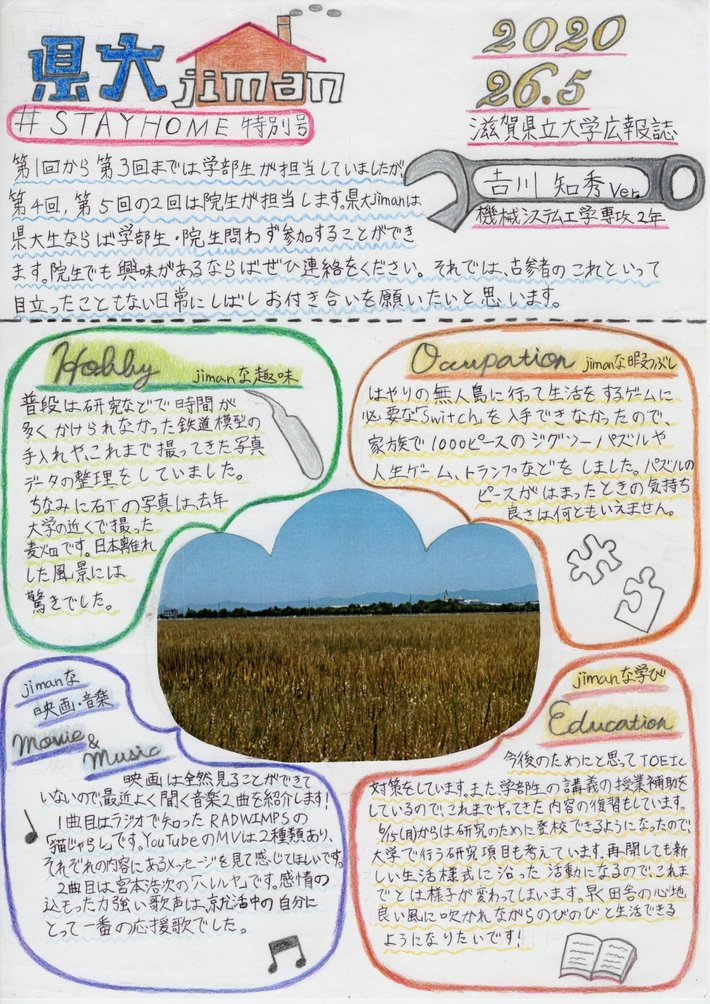 県大jiman
#STAYHOME 特別号
2020
26.5
滋賀県立大学広報誌
吉川 知秀 Ver.
機械システム工学専攻2年
第1回から第3回までは学部生が担当していましたが、
第4回、第5回の2回は院生が担当します。県大jimanは
県大生ならば学部生・院生問わず参加することができ
ます。院生でも興味があるならばぜひ連絡をください。それでは、古参者のこれといって
目立ったこともない日常にしばしお付き合いを願いたいと思います。
Hobby jimanな趣味
普段は研究などで時間が
多くかけられなかった鉄道模型の
手入れや、これまで撮ってきた写真
データの整理をしていました。
ちなみに右下の写真は、去年
大学の近くで撮った
麦畑です。日本離れ
した風景には
驚きでした。
Ocupation jimanな暇つぶし
はやりの無人島に行って生活をするゲームに
必要な「Switch」を入手できなかったので、
家族で1000ピースのジグソーパズルや
人生ゲーム、トランプなどをしました。パズルの
ピースがはまったときの気持ち
良さは何ともいえません。
jimanな
映画・音楽
Movie &
Music
映画は全然見ることができて
いないので、最近よく聞く音楽2曲を紹介します!
1曲目はラジオで知ったRADWIMPSの
「猫じゃらし」です。YouTubeのMVは2種類あり、
それぞれの内容にあるメッセージを見て感じてほしいです。
2曲目は宮本浩次の「ハレルヤ」です。感情の
込もった力強い歌声は、就活中の自分に
とって一番の応援歌でした。
jimanな学び
Education
今後のためにと思ってTOEIC
対策をしています。また学部生の講義の授業補助を
しているので、これまでやってきた内容の復習もしています。
6/15(月)からは研究のために登校できるようになったので、
大学で行う研究項目も考えています。再開しても新
しい生活様式に沿った活動になるので、これま
でとは様子が変わってしまいます。早く田舎の心地
良い風に吹かれながらのびのびと生活できる
ようになりたいです!